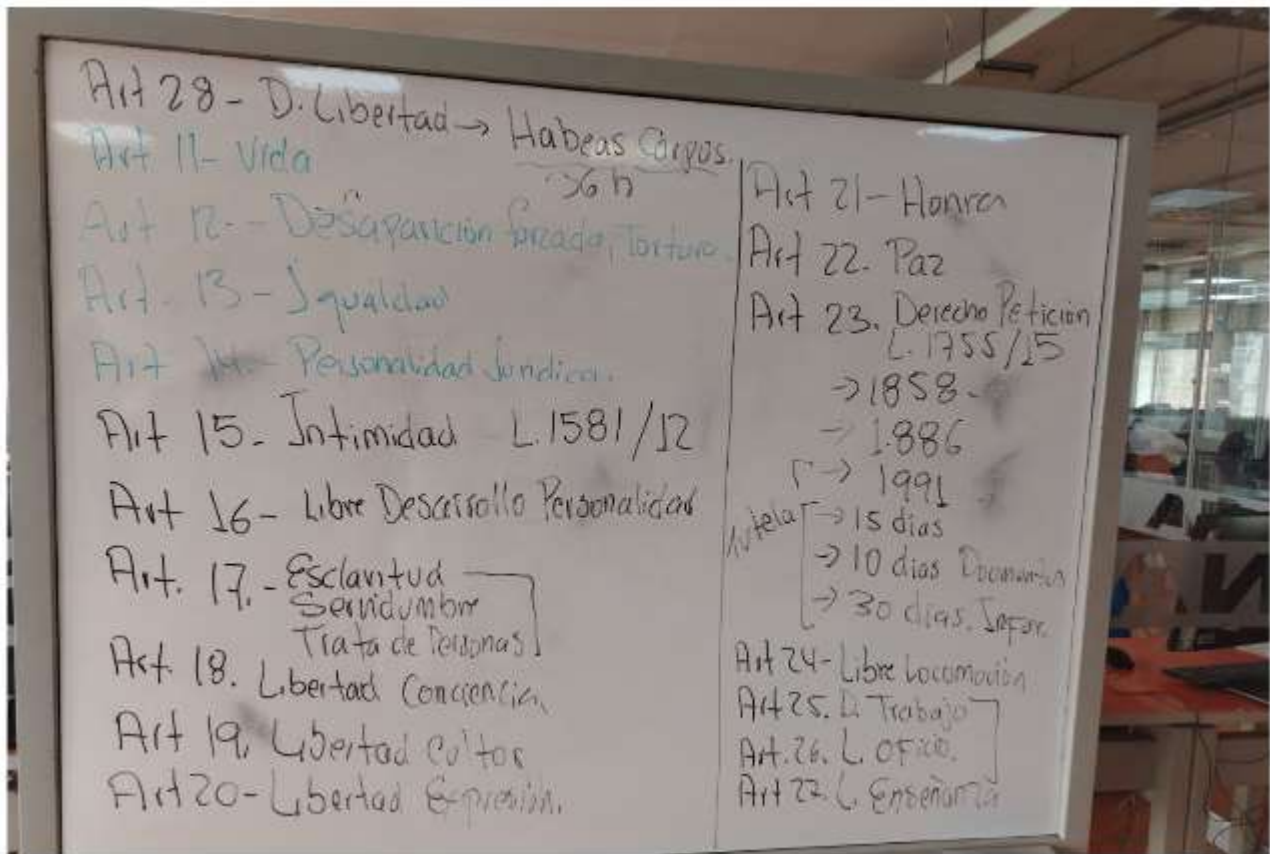 Art 28 - D. Libertad → Habeas Corpos.
36 h
Art 11 - Vida
Art 12 - - Desaparición forzada, Tortura.
Art. 13 - Igualdad
Art 14. - Personalidad Jurídica.
Art 15 - Intimidad L. 1581/12
Art 16 - Libre Desarrollo Personalidad
Art. 17. - Esclavitud
Servidumbre
Trata de Personas
Art. 18. Libertad Conciencia.
Art 19. Libertad Coltos
Art 20 - Libertad Expresión.
Art 21 - Honra
Art 22. Paz
Art 23. Derecho Petición
L. 1755/15
→ 1858.
→ 1.886
→ 1991
Tutela → 15 dias
→ 10 dias Documentos
→ 30 dias. Infor.
Art 24 - Libre Locomoción
Art 25. L. Trabajo
Art. 26. L. Oficio.
Art 27. L. Enseñanza